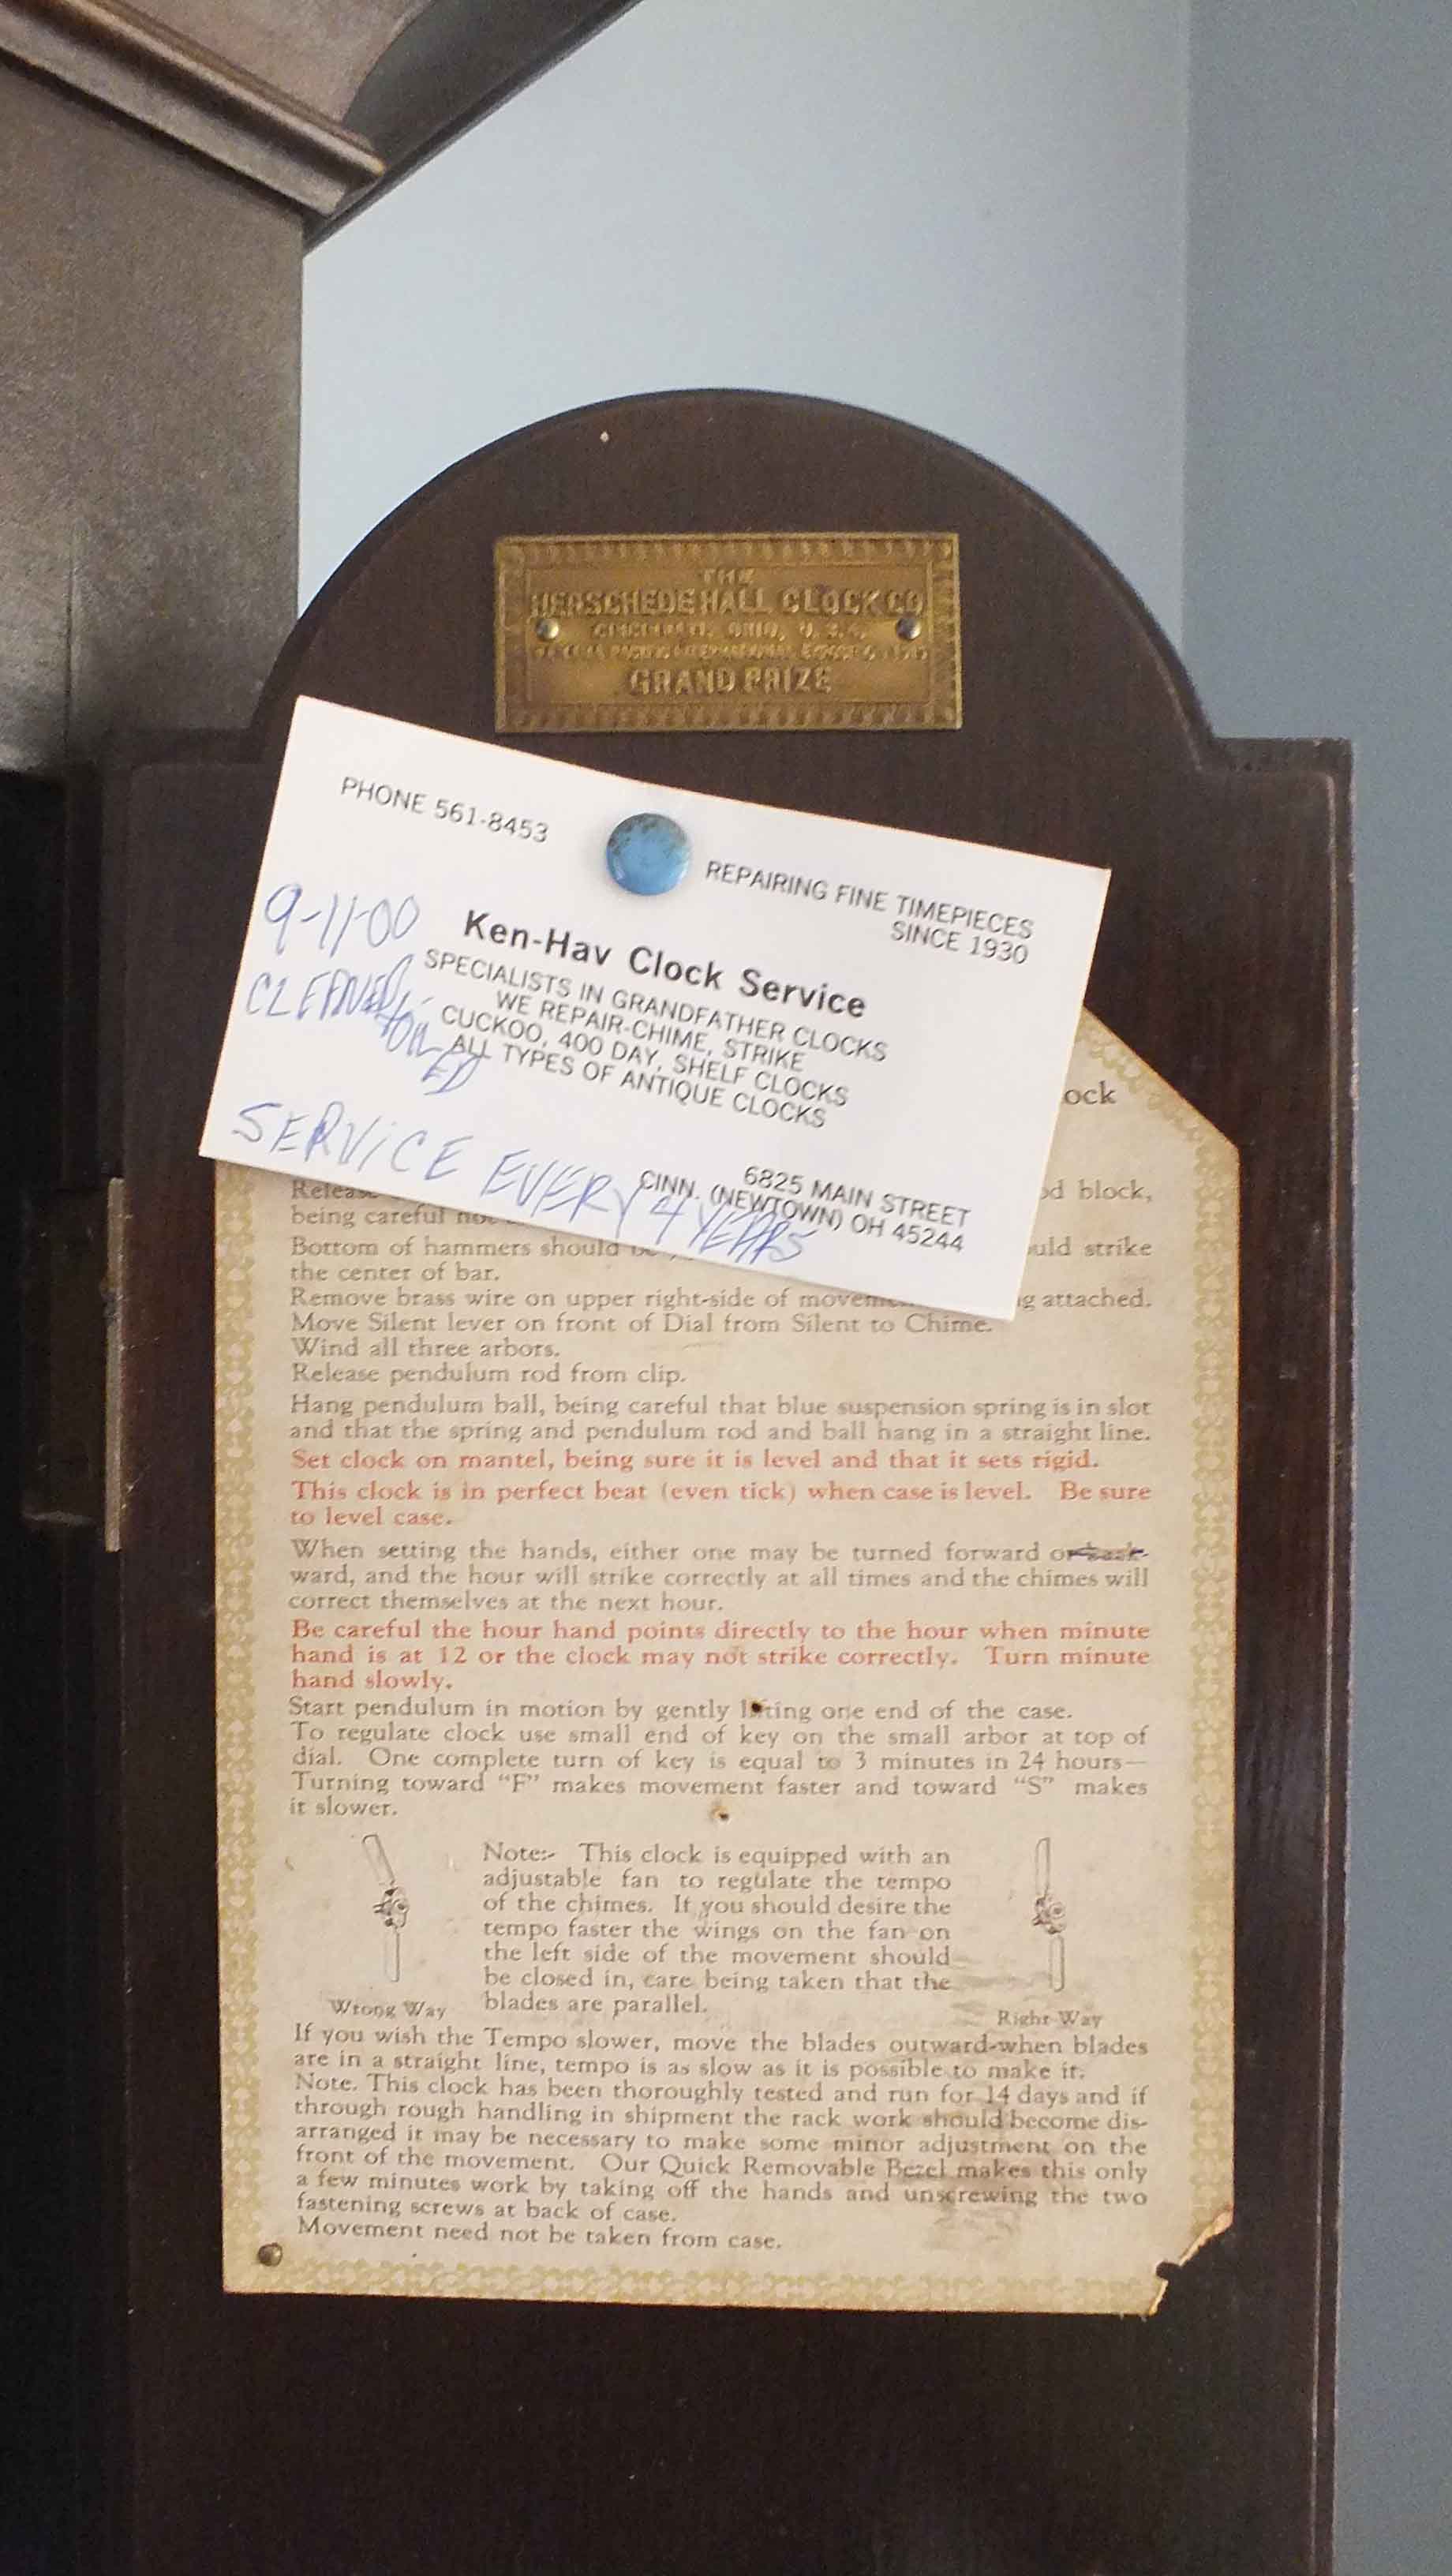 THE
HERSCHEDE HALL CLOCK CO
CINCINNATI, OHIO, U.S.A.
GRAND PRIZE
PHONE 561-8453
REPAIRING FINE TIMEPIECES
SINCE 1930
9-11-00
Ken-Hav Clock Service
CLEANED
SPECIALISTS IN GRANDFATHER CLOCKS
WE REPAIR-CHIME, STRIKE
CUCKOO, 400 DAY, SHELF CLOCKS
ALL TYPES OF ANTIQUE CLOCKS
SERVICE EVERY 4 YEARS
6825 MAIN STREET
CINN. (NEWTOWN) OH 45244
ock
Release od block,
being careful
Bottom of hammers should uld strike
the center of bar.
Remove brass wire on upper right-side of g attached.
Move Silent lever on front of Dial from Silent to Chime.
Wind all three arbors.
Release pendulum rod from clip.
Hang pendulum ball, being careful that blue suspension spring is in slot
and that the spring and pendulum rod and ball hang in a straight line.
Set clock on mantel, being sure it is level and that it sets rigid.
This clock is in perfect beat (even tick) when case is level. Be sure
to level case.
When setting the hands, either one may be turned forward or back-
ward, and the hour will strike correctly at all times and the chimes will
correct themselves at the next hour.
Be careful the hour hand points directly to the hour when minute
hand is at 12 or the clock may not strike correctly. Turn minute
hand slowly.
Start pendulum in motion by gently lifting one end of the case.
To regulate clock use small end of key on the small arbor at top of
dial. One complete turn of key is equal to 3 minutes in 24 hours—
Turning toward "F" makes movement faster and toward "S" makes
it slower.
Note:- This clock is equipped with an
adjustable fan to regulate the tempo
of the chimes. If you should desire the
tempo faster the wings on the fan on
the left side of the movement should
be closed in, care being taken that the
blades are parallel.
Wrong Way
Right Way
If you wish the Tempo slower, move the blades outward-when blades
are in a straight line, tempo is as slow as it is possible to make it.
Note. This clock has been thoroughly tested and run for 14 days and if
through rough handling in shipment the rack work should become dis-
arranged it may be necessary to make some minor adjustment on the
front of the movement. Our Quick Removable Bezel makes this only
a few minutes work by taking off the hands and unscrewing the two
fastening screws at back of case.
Movement need not be taken from case.